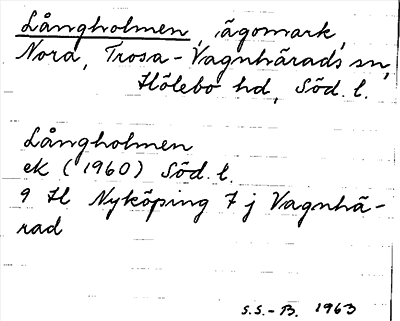 Långholmen, ägomark,
Nora, Trosa-Vagnhärads sn,
Hölebo hd, Söd. l.
Långholmen
ek (1960) Söd. l.
9 Hl Nyköping 7 j Vagnhä-
rad
S.S.-B. 1963